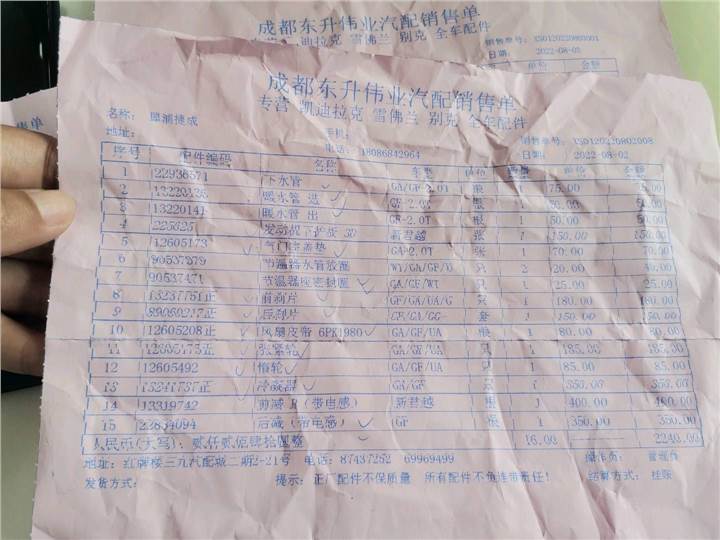 成都东升伟业汽配销售单
迪拉克 雪佛兰 别克 全车配件
销售单号: XS0120220803001
日期: 2022-08-03
单位 金额
售单
成都东升伟业汽配销售单
专营 凯迪拉克 雪佛兰 别克 全车配件
名称: 犀浦捷成
地址: 手机:
电话: 18086842964
销售单号: XS0120220802008
日期: 2022-08-02
序号 配件编码 名称 车型 单位 数量 单价 金额
1 22938571 下水管 GA/GF-2.0T 根 1 75.00 75.00
2 13220136 暖水管 进 GF-2.0T 根 1 50.00 50.00
3 13220141 暖水管 出 GF-2.0T 根 1 50.00 50.00
4 225625 发动机下护板 3D 新君越 张 1 150.00 150.00
5 12605173 气门室盖垫 GAP-2.0T 张 1 70.00 70.00
6 90537379 节温器水管胶圈 WY/GA/GF/U 只 2 20.00 40.00
7 90537471 节温器座密封圈 GA/GF/WT 只 1 25.00 25.00
8 13237751正 前刹片 GF/GA/UA/G 套 1 180.00 180.00
9 89060217正 后刹片 GF/GA/GG 套 1 150.00 150.00
10 12605208正 风扇皮带 6PK1980 GA/GF/UA 根 1 80.00 80.00
11 12605175正 张紧轮 GA/GF/UA 只 1 185.00 185.00
12 12605492 惰轮 GA/GF/UA 只 1 85.00 85.00
13 13241737正 冷凝器 GA/GF 只 1 350.00 350.00
14 13319742 前减 R (带电感) 新君越 根 1 400.00 400.00
15 22834094 后减 (带电感) GF 根 1 350.00 350.00
人民币(大写): 贰仟贰佰肆拾圆整 16.00 2240.00
地址: 红牌楼三九汽配城二期2-21号 电话: 87437252 69969499 操作员: 管理员
发货方式: 提示: 正厂配件不保质量 所有配件不负连带责任! 结算方式: 挂账